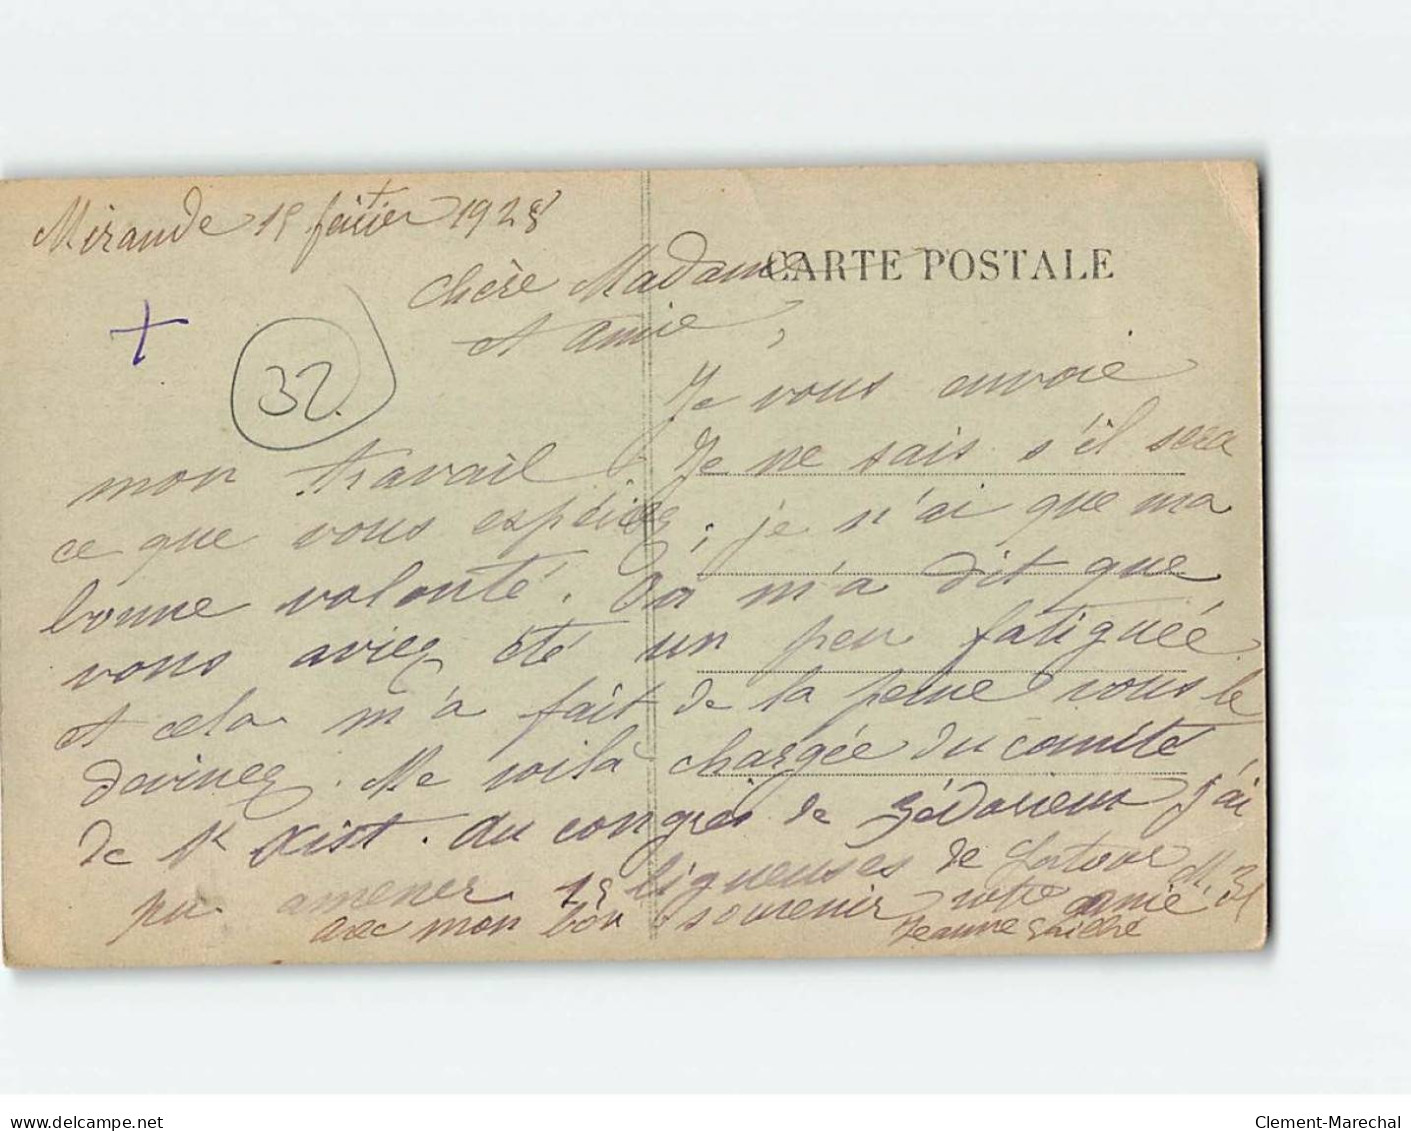 Mirande 15 février 1928
CARTE POSTALE
Chère Madame
et amie,
32
Je vous envoie
mon travail. Je ne sais s'il sera
ce que vous espériez, je n'ai que ma
bonne volonté. On m'a dit que
vous aviez été un peu fatiguée
et cela m'a fait de la peine vous le
devinez. Me voilà chargée du comité
de St Xist. Au congrès de j'ai
pu amener 15 ligueuses de
avec mon bon souvenir votre amie
Jeanne
www.delcampe.net
Clement-Marechal